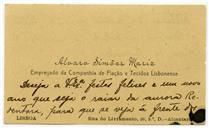 Alvaro Simões Maria
Empregado da Companhia de Fiação e Tecidos Lisbonense
Deseja a V. Ex.ª festas felizes e um novo
ano que seja o raiar da aurora Re-
dentora, para que se veja à frente do
LISBOA Rua do Livramento, 20, 2.º, D.-Alcantara